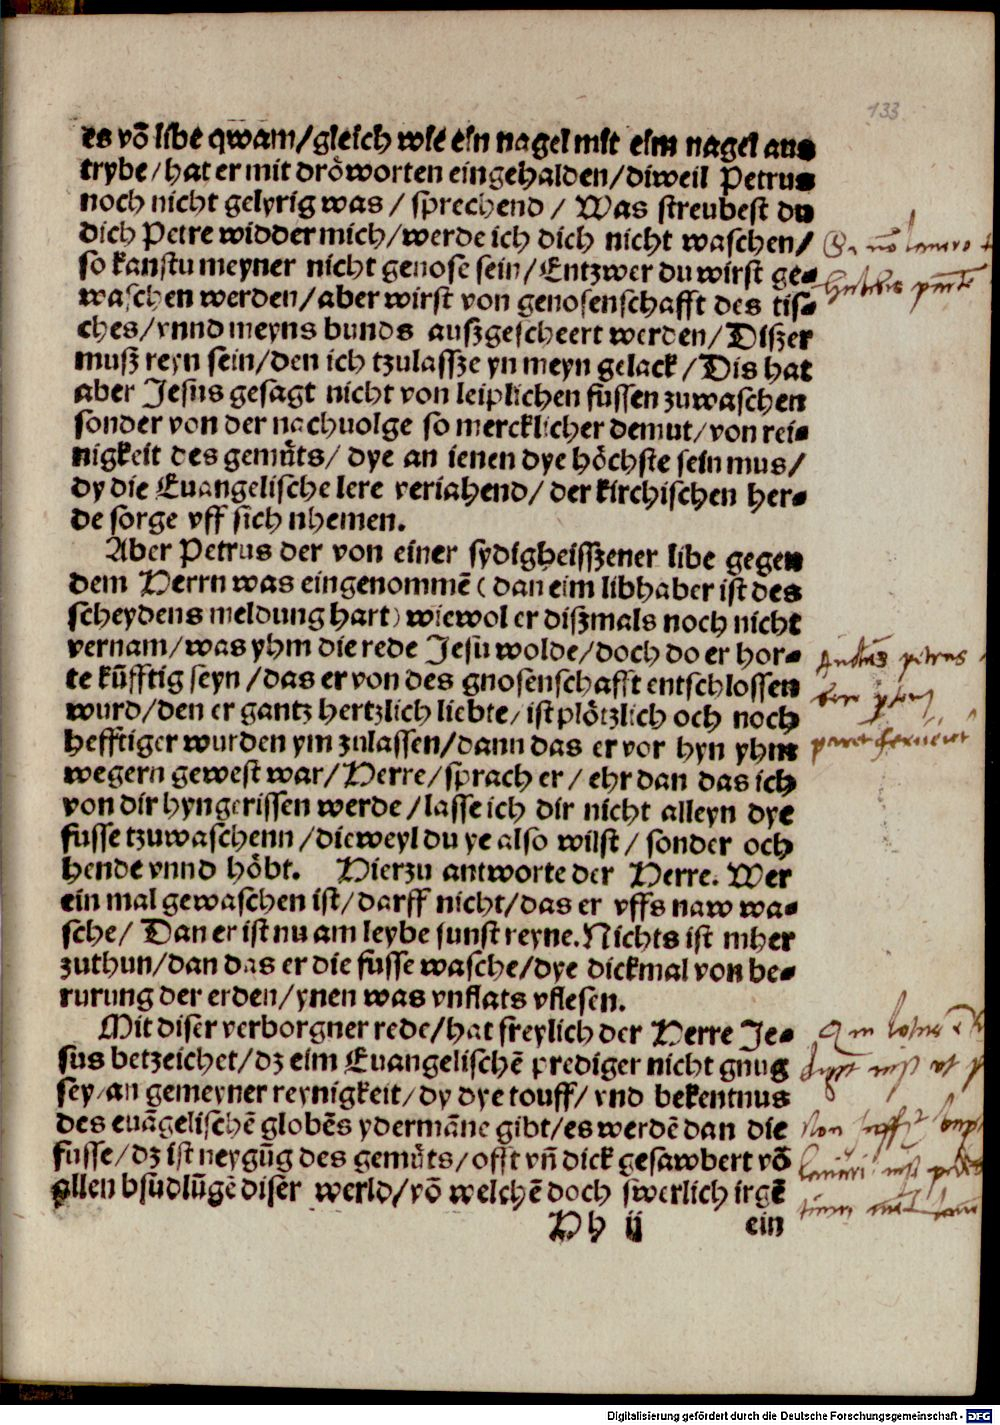 133
es võ libe qwam/gleich wie ein nagel mit eim nagel aus
trybe/hat er mit dröworten eingehalden/diweil Petrus
noch nicht gelyrig was/sprechend/Was streubest du
dich Petre widder mich/werde ich dich nicht waschen/
so kanstu meyner nicht genose sein/Entzwer du wirst ge-
waschen werden/aber wirst von genosenschafft des tis-
ches/vnnd meyns bunds außgescheert werden/Dißer
muß reyn sein/den ich tzulassze yn meyn gelack/Dis hat
aber Jesus gesagt nicht von leiplichen fussen zuwaschen
sonder von der nachuolge so mercklicher demut/von rei-
nigkeit des gemůts/dye an ienen dye höchste sein mus/
dy die Euangelische lere veriahend/der kirchischen her-
de sorge vff sich nhemen.
Aber Petrus der von einer sydigheisszener libe gegen
dem Herrn was eingenommẽ (dan eim libhaber ist des
scheydens meldung hart) wiewol er dißmals noch nicht
vernam/was yhm die rede Jesu wolde/doch do er hor-
te kũfftig seyn/das er von des gnosenschafft entschlossen
wurd/den er gantz hertzlich liebte/ist plötzlich och noch
hefftiger wurden ym zulassen/dann das er vor hyn yhm
wegern gewest war/Herre/sprach er/ehr dan das ich
von dir hyngerissen werde/lasse ich dir nicht alleyn dye
fusse tzuwaschenn/dieweyl du ye also wilst/sonder och
hende vnnd höbt. Hierzu antworte der Herre. Wer
ein mal gewaschen ist/darff nicht/das er vffs naw wa-
sche/Dan er ist nu am leybe sunst reyne. Nichts ist mher
zuthun/dan das er die fusse wasche/dye dickmal von be-
rurung der erden/ynen was vnflats vflesen.
Mit diser verborgner rede/hat freylich der Herre Je-
sus betzeichet/dz eim Euangelischẽ prediger nicht gnug
sey/an gemeyner reynigkeit/dy dye touff/vnd bekentnus
des euãgelischẽ globẽs ydermãne gibt/es werdẽ dan die
fusse/dz ist neygũg des gemůts/offt vñ dick gesawbert võ
allen bsudlũgẽ diser werld/võ welchẽ doch swerlich irgẽ
Hh ij ein
petrus
Digitalisierung gefördert durch die Deutsche Forschungsgemeinschaft - DFG